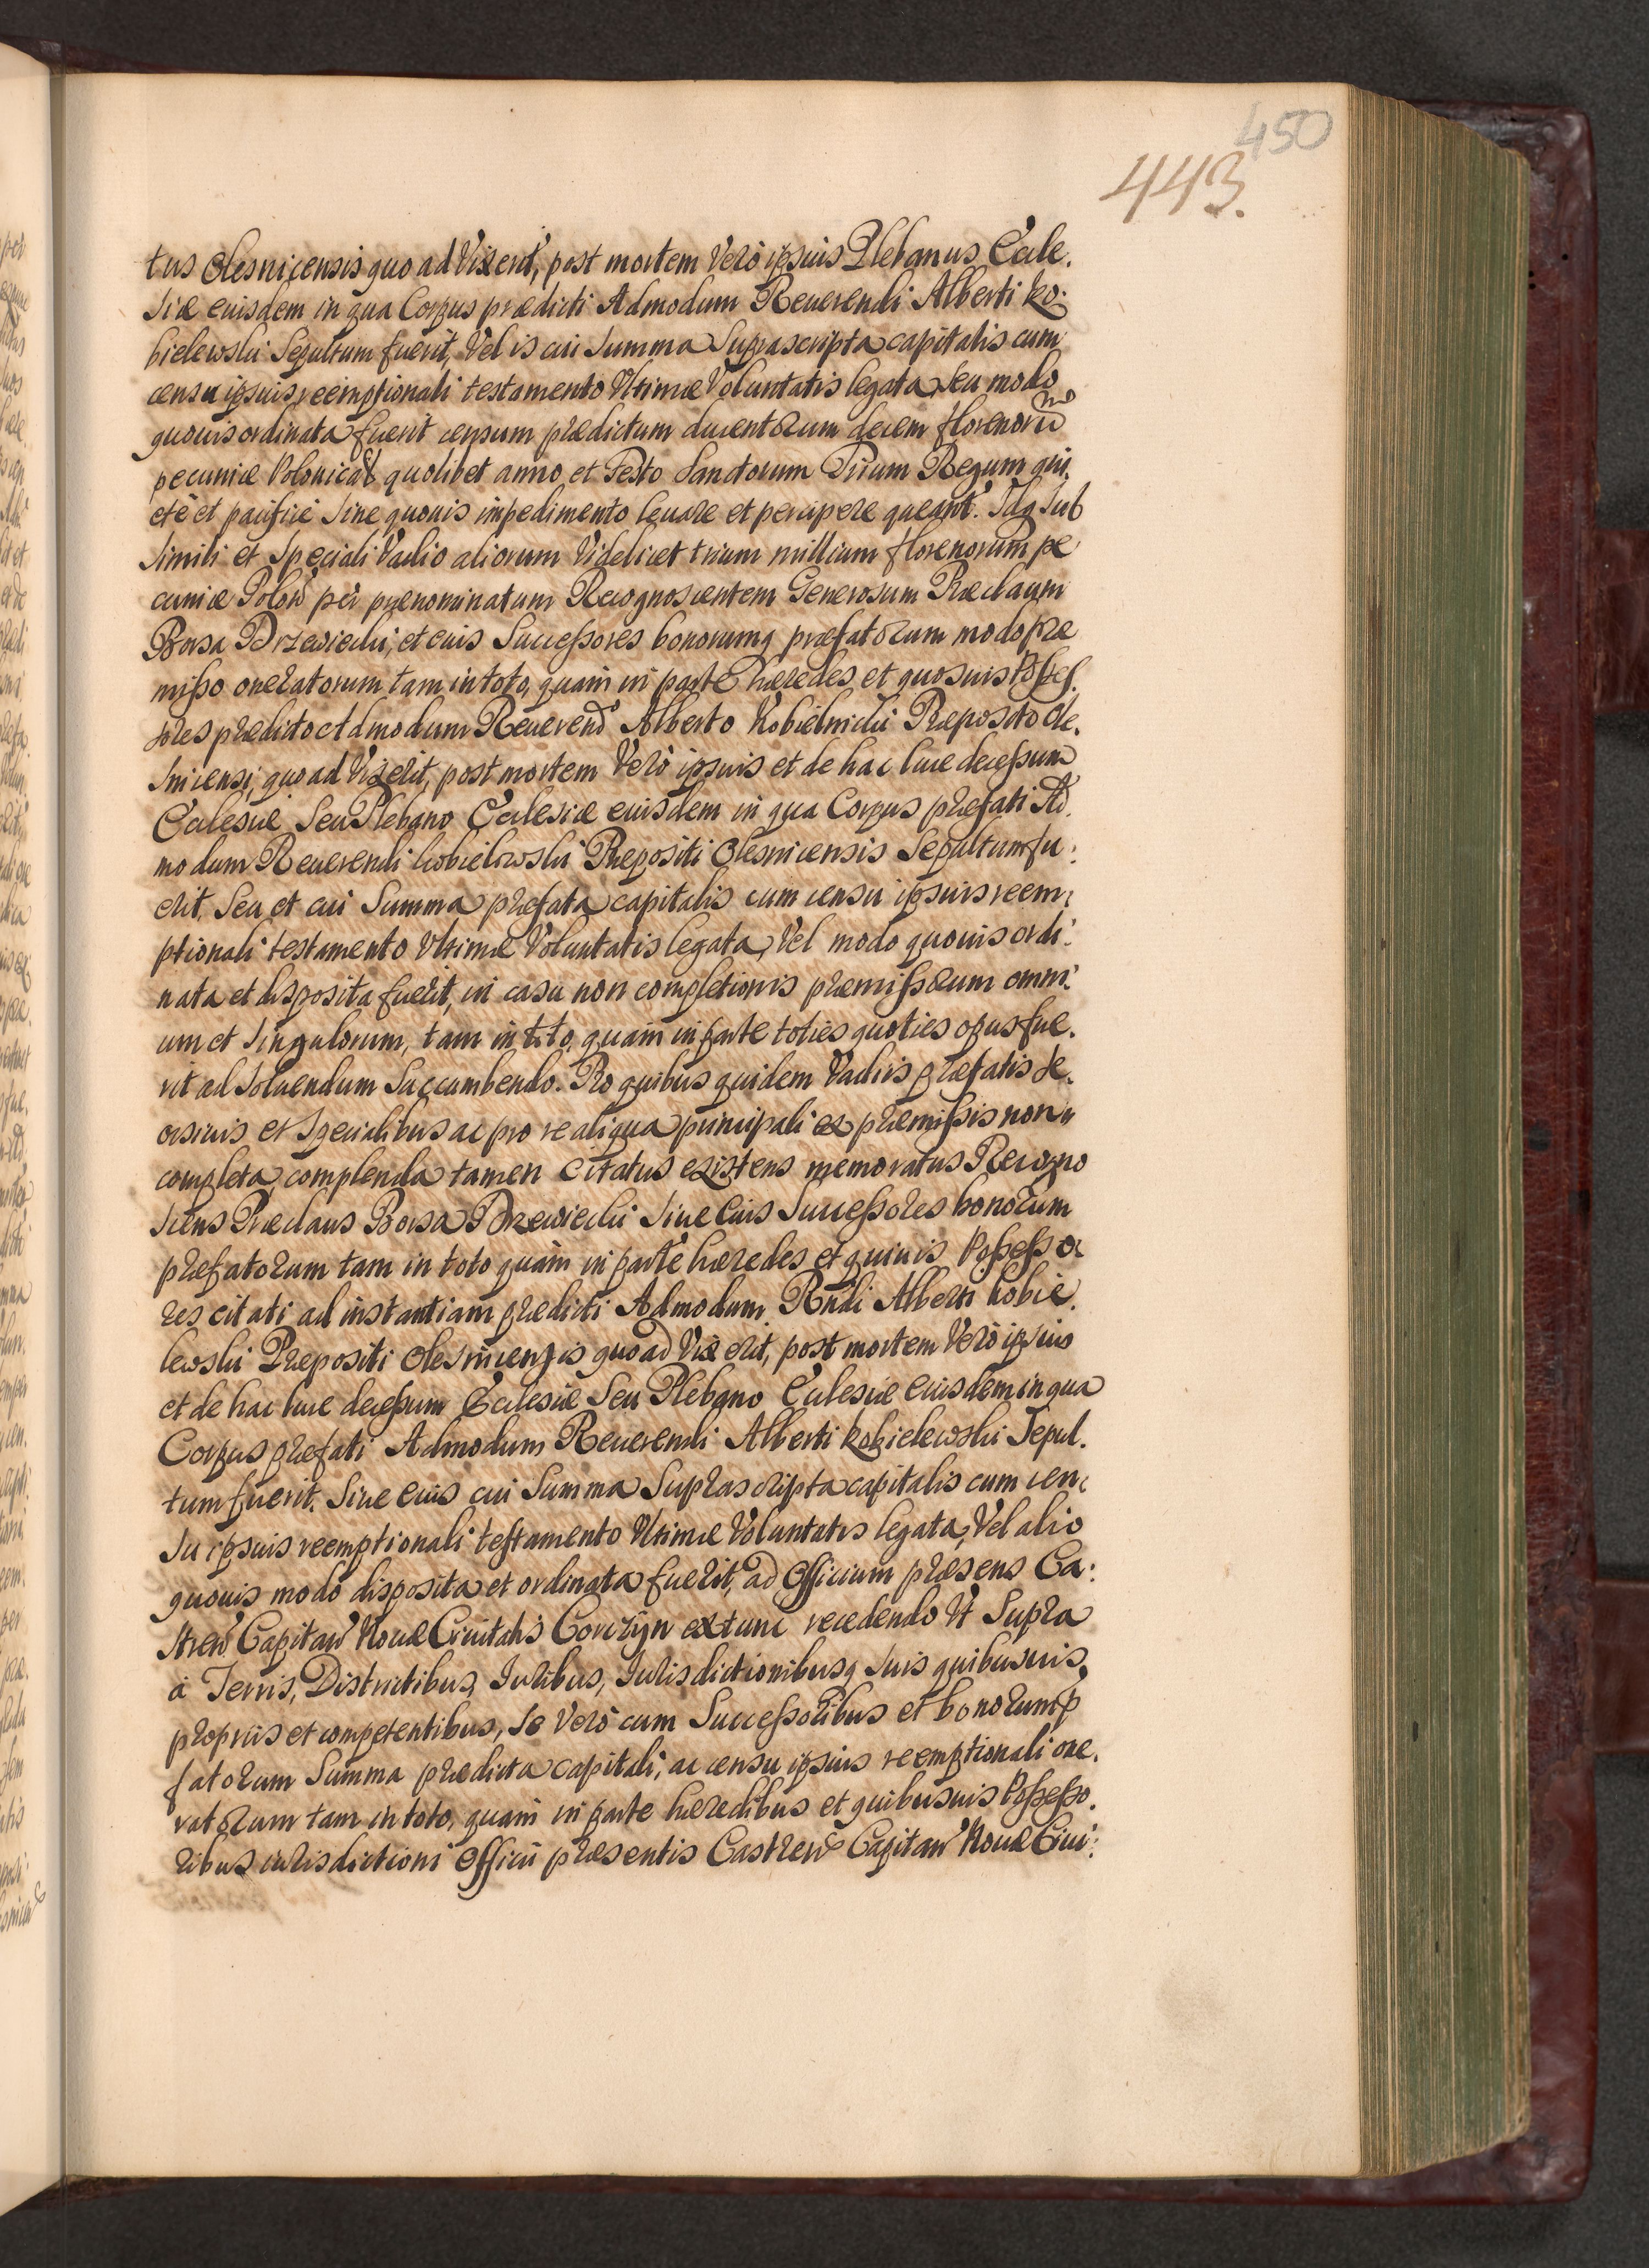 450
443.
tus Olesnicensis quo ad Vixerit, post mortem Verò ipsius Plebanus Eccle.
siæ eiusdem in qua Corpus prædicti Admodum Reuerendi Alberti Ko:
bielewski Sepultum fuerit, Vel is cui Summa Suprascripta capitalis cum
censu ipsius reemptionali testamento Vltimæ Voluntatis legata, seu modo
quouis ordinata fuerit censum prædictum ducentorum decem florenorum
pecuniæ Polonical quolibet anno, et Festo Sanctorum Trium Regum qui,
etè et pacificè sine quouis impedimento leuare et percipere queant. Idq Sub
simili et Speciali Vadio aliorum Videlicet trium millium florenorum pe
cuniæ Polon per prænominatum Recognoscentem Generosum Præclaum
Borsa Drzewiecki, et euis Successores bonorumq præfatorum modo præ
misso oneratorum tam in toto, quam in parte hæredes et quosuis Posses.
sores prædicto Admodum Reuerend Alberto Kobielnicki Præposito Ole.
snicensi, quo ad Vixerit, post mortem Verò ipsuis et de hac luce decessum
Ecclesiæ Seu Plebano Ecclesiæ euisdem in qua Corpus præfati Ad.
modum Reuerendi Kobielowski Præpositi Olesnicensis Sepultum fu:
erit. Seu et cui Summa præfata capitalis cum censu ipsuis reem:
ptionali testamento Vltimæ Voluntatis legata, Vel modo quouis ordi:
nata et disposita fuerit, in casu non completionis præmissorum omni:
um et Singulorum, tam in toto, quam in parte toties quoties opus fue.
rit ad Soluendum Succumbendo. Pro quibus quidem Vadiis præfatis se.
orsiuis et Specialibus ac pro re aliqua principali ex præmissis non
completa, complenda tamen citatus existens memoratus Recogno
scens Præclaus Borsa Drzewiecki Siue Euis Successores bonorum
præfatorum tam in toto quàm in parte hæredes et quiuis Possesso
res citati ad instantiam prædicti Admodum Rndi Alberti Kobie.
lewski Præpositi Olesnicensis quo ad Vixerit, post mortem Verò ipsuis
et de hac luce decessum Ecclesiæ Seu Plebano Ecclesiæ Euisdem in qua
Corpus præfati Admodum Reuerendi Alberti Kobielewski Sepul.
tum fuerit. Siue euis cui Summa Suprascripta capitalis cum cen:
su ipsuis reemptionali testamento Vltimæ Voluntatis legata, Vel alio
quouis modo disposita et ordinata fuerit, ad Officium præsens Ca:
stren Capitan Nouæ Ciuitatis Corczyn ex tunc recedendo Vt Supra
à Terris, Districtibus, Iuribus, Iurisdictionibusq Suis quibusuis,
propriis et competentibus, Se Verò cum Successoribus et bonorum p
fatorum Summa prædicta capitali, ac censu ipsius reemptionali one.
ratorum tam in toto, quam in parte hæredibus et quibusuis Possesso.
ribus iurisdictioni Officii præsentis Castren Capitan Nouæ Ciui: